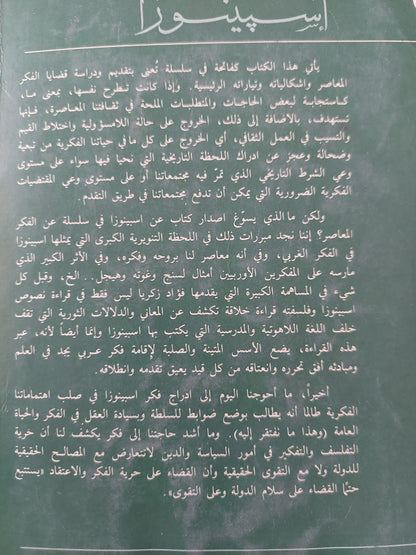 إسبينوزا
يأتي هذا الكتاب كفاتحة في سلسلة تُعنى بتقديم ودراسة قضايا الفكر
المعاصر وإشكالياته وتياراته الرئيسية. وإذا كانت تطرح نفسها، بمعنى ما،
كاستجابة لبعض الحاجات والمتطلبات الملحة في ثقافتنا المعاصرة، فإنها
تستهدف، بالاضافة إلى ذلك، الخروج على حالة اللامسؤولية واختلاط القيم
والتسيب في العمل الثقافي، أي الخروج على كل ما في حياتنا الفكرية من تبعية
وضحالة وعجز عن ادراك اللحظة التاريخية التي نحيا فيها سواء على مستوى
وعي الشرط التاريخي الذي تمرّ فيه مجتمعاتنا أو على مستوى وعي المقتضيات
الفكرية الضرورية التي يمكن أن تدفع مجتمعاتنا في طريق التقدم.
ولكن ما الذي يسوّغ اصدار كتاب عن اسبينوزا في سلسلة عن الفكر
المعاصر؟ إننا نجد مبررات ذلك في اللحظة التنويرية الكبرى التي يمثلها اسبينوزا
في الفكر الغربي، وفي أنه معاصر لنا بروحه وفكره، وفي الأثر الكبير الذي
مارسه على المفكرين الأوربيين أمثال لسنج وغوته وهيجل.. الخ، وقبل كل
شيء في المساهمة الكبيرة التي يقدمها فؤاد زكريا ليس فقط في قراءة نصوص
اسبينوزا وفلسفته قراءة خلاقة تكشف عن المعاني والدلالات الثورية التي تقف
خلف اللغة اللاهوتية والمدرسية التي يكتب بها اسبينوزا وإنما أيضاً لأنه، عبر
هذه القراءة، يضع الأسس المتينة والصلبة لإقامة فكر عربي يجد في العلم
ومبادئه أفق تحرره وانعتاقه من كل قيد يعيق تقدمه وانطلاقه.
أخيراً، ما أحوجنا اليوم إلى ادراج فكر اسبينوزا في صلب اهتماماتنا
الفكرية طالما أنه يطالب بوضع ضوابط للسلطة وبسيادة العقل في الفكر والحياة
العامة (وهذا ما نفتقر إليه). وما أشد حاجتنا إلى فكر يكشف لنا أن حرية
التفلسف والتفكير في أمور السياسة والدين لاتتعارض مع المصالح الحقيقية
للدولة ولا مع التقوى الحقيقية وأن القضاء على حرية الفكر والاعتقاد «يستتبع
حتماً القضاء على سلام الدولة وعلى التقوى».